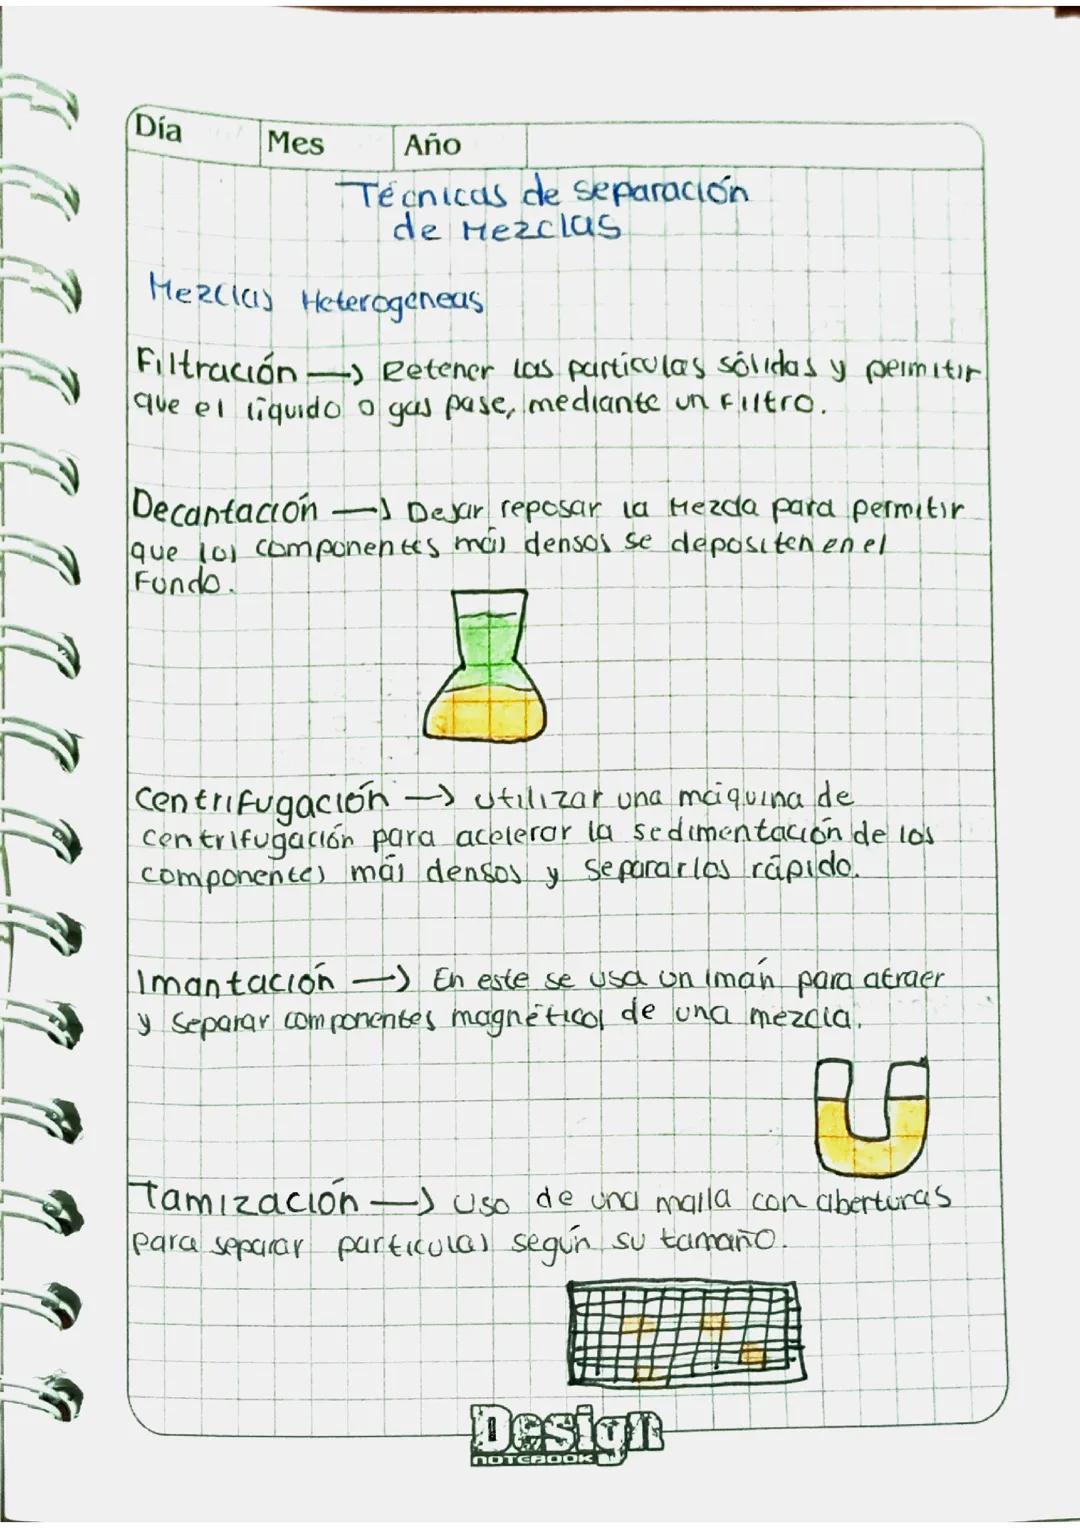 Día Mes Año
Técnicas de separación
de Mezclas
Mezclas Heterogeneas
Filtración → Retener las partículas sólidas y permitir
que el líquido o gas pase, mediante un Filtro.
Decantación → Dejar reposar la Mezcla para permitir
que los componentes más densos se depositen en el
Fundo.
Centrifugación → Utilizar una máquina de
centrifugación para acelerar la sedimentación de los
componentes más densos y separarlos rápido.
Imantación → En este se usa un imán para atraer
y separar componentes magnéticos de una mezcla.
Tamización → Uso de una malla con aberturas
para separar particulas según su tamaño.
Design
NOTEBOOK